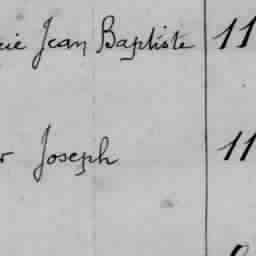 Jean Baptiste 11
Joseph 11